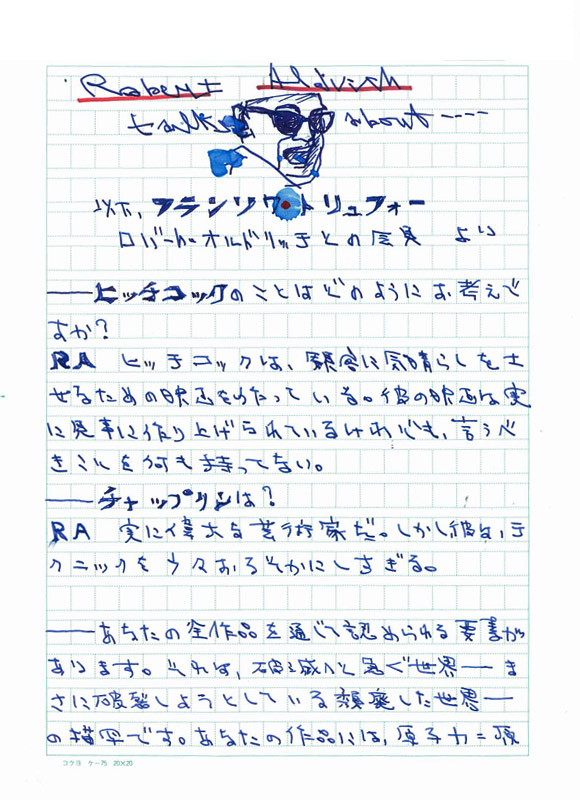 Robert Aldrich
talks about ----
以下、フランソワ・トリュフォー
ロバート・オルドリッチとの会見 より
——ヒッチコックのことはどのようにお考えで
すか?
RA ヒッチコックは、観客に気晴らしをさ
せるための映画を作っている。彼の映画は実
に見事に作り上げられているけれども、言うべ
きことを何も持ってない。
——チャップリンは?
RA 実に偉大な芸術家だ。しかし彼は、テ
クニックを少々おろそかにしすぎる。
——あなたの全作品を通じて認められる要素が
あります。それは、破滅へと急ぐ世界——ま
さに破裂しようとしている頽廃した世界——
の描写です。あなたの作品には、原子力=原
コクヨ ケー75 20×20